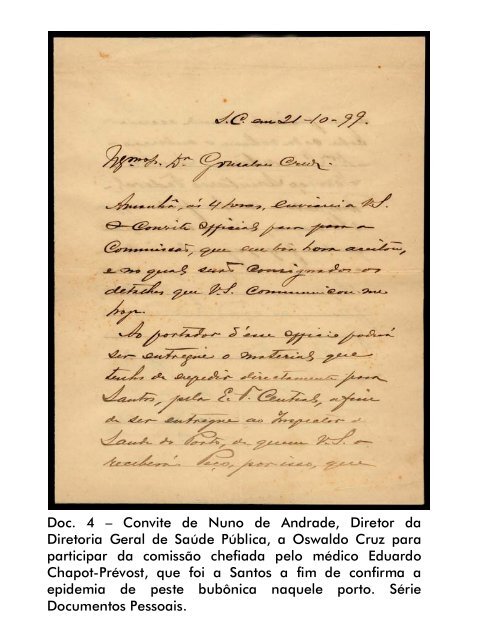 S.C. em 21-10-99.
Dr Gonçalves Cruz.
Amanhã, ás 4 horas, enviarei a V.S.
o Convite official para a
Commissão, que em boa hora aceitou,
e no qual serão consignados os
detalhes que V.S. communicou me
hoje.
Ao portador d'esse officio poderá
ser entregue o material que
tenho de expedir directamente para
Santos, pela E. F. Central, a fim
de ser entregue ao Inspector de
Saude do Porto, de quem V.S. o
receberá. Peço, por isso, que
Doc. 4 – Convite de Nuno de Andrade, Diretor da
Diretoria Geral de Saúde Pública, a Oswaldo Cruz para
participar da comissão chefiada pelo médico Eduardo
Chapot-Prévost, que foi a Santos a fim de confirma a
epidemia de peste bubônica naquele porto. Série
Documentos Pessoais.